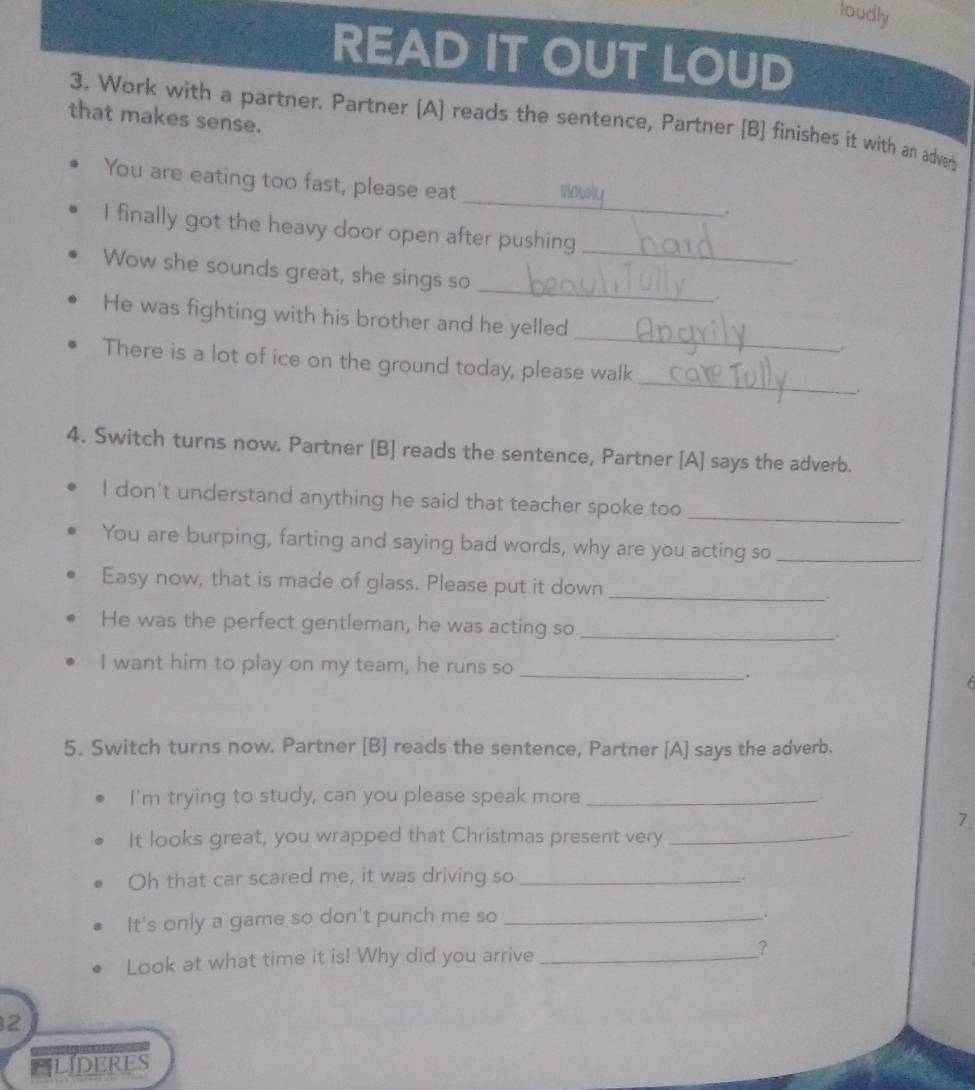 loudly
READ IT OUT LOUD
3. Work with a partner. Partner [A] reads the sentence, Partner [B] finishes it with an adverb
that makes sense.
• You are eating too fast, please eat slowly.
• I finally got the heavy door open after pushing hard.
• Wow she sounds great, she sings so beautifully.
• He was fighting with his brother and he yelled Angrily.
• There is a lot of ice on the ground today, please walk carefully.
4. Switch turns now. Partner [B] reads the sentence, Partner [A] says the adverb.
• I don't understand anything he said that teacher spoke too ____
• You are burping, farting and saying bad words, why are you acting so ____
• Easy now, that is made of glass. Please put it down ____.
• He was the perfect gentleman, he was acting so ____.
• I want him to play on my team, he runs so ____.
5. Switch turns now. Partner [B] reads the sentence, Partner [A] says the adverb.
• I'm trying to study, can you please speak more ____.
• It looks great, you wrapped that Christmas present very ____.
• Oh that car scared me, it was driving so ____.
• It's only a game so don't punch me so ____.
• Look at what time it is! Why did you arrive ____?
6
7.
32
LÍDERES